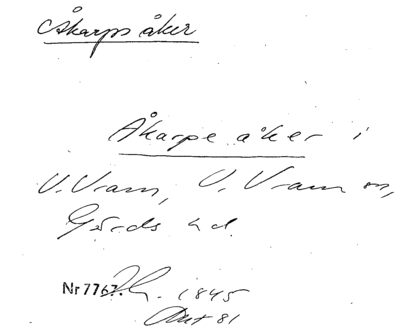 Åkarps åker
Åkarpe åker i
V. Vram, V. Vram sn,
Gärds hd.
Nr 7767. 1845
Akt 81